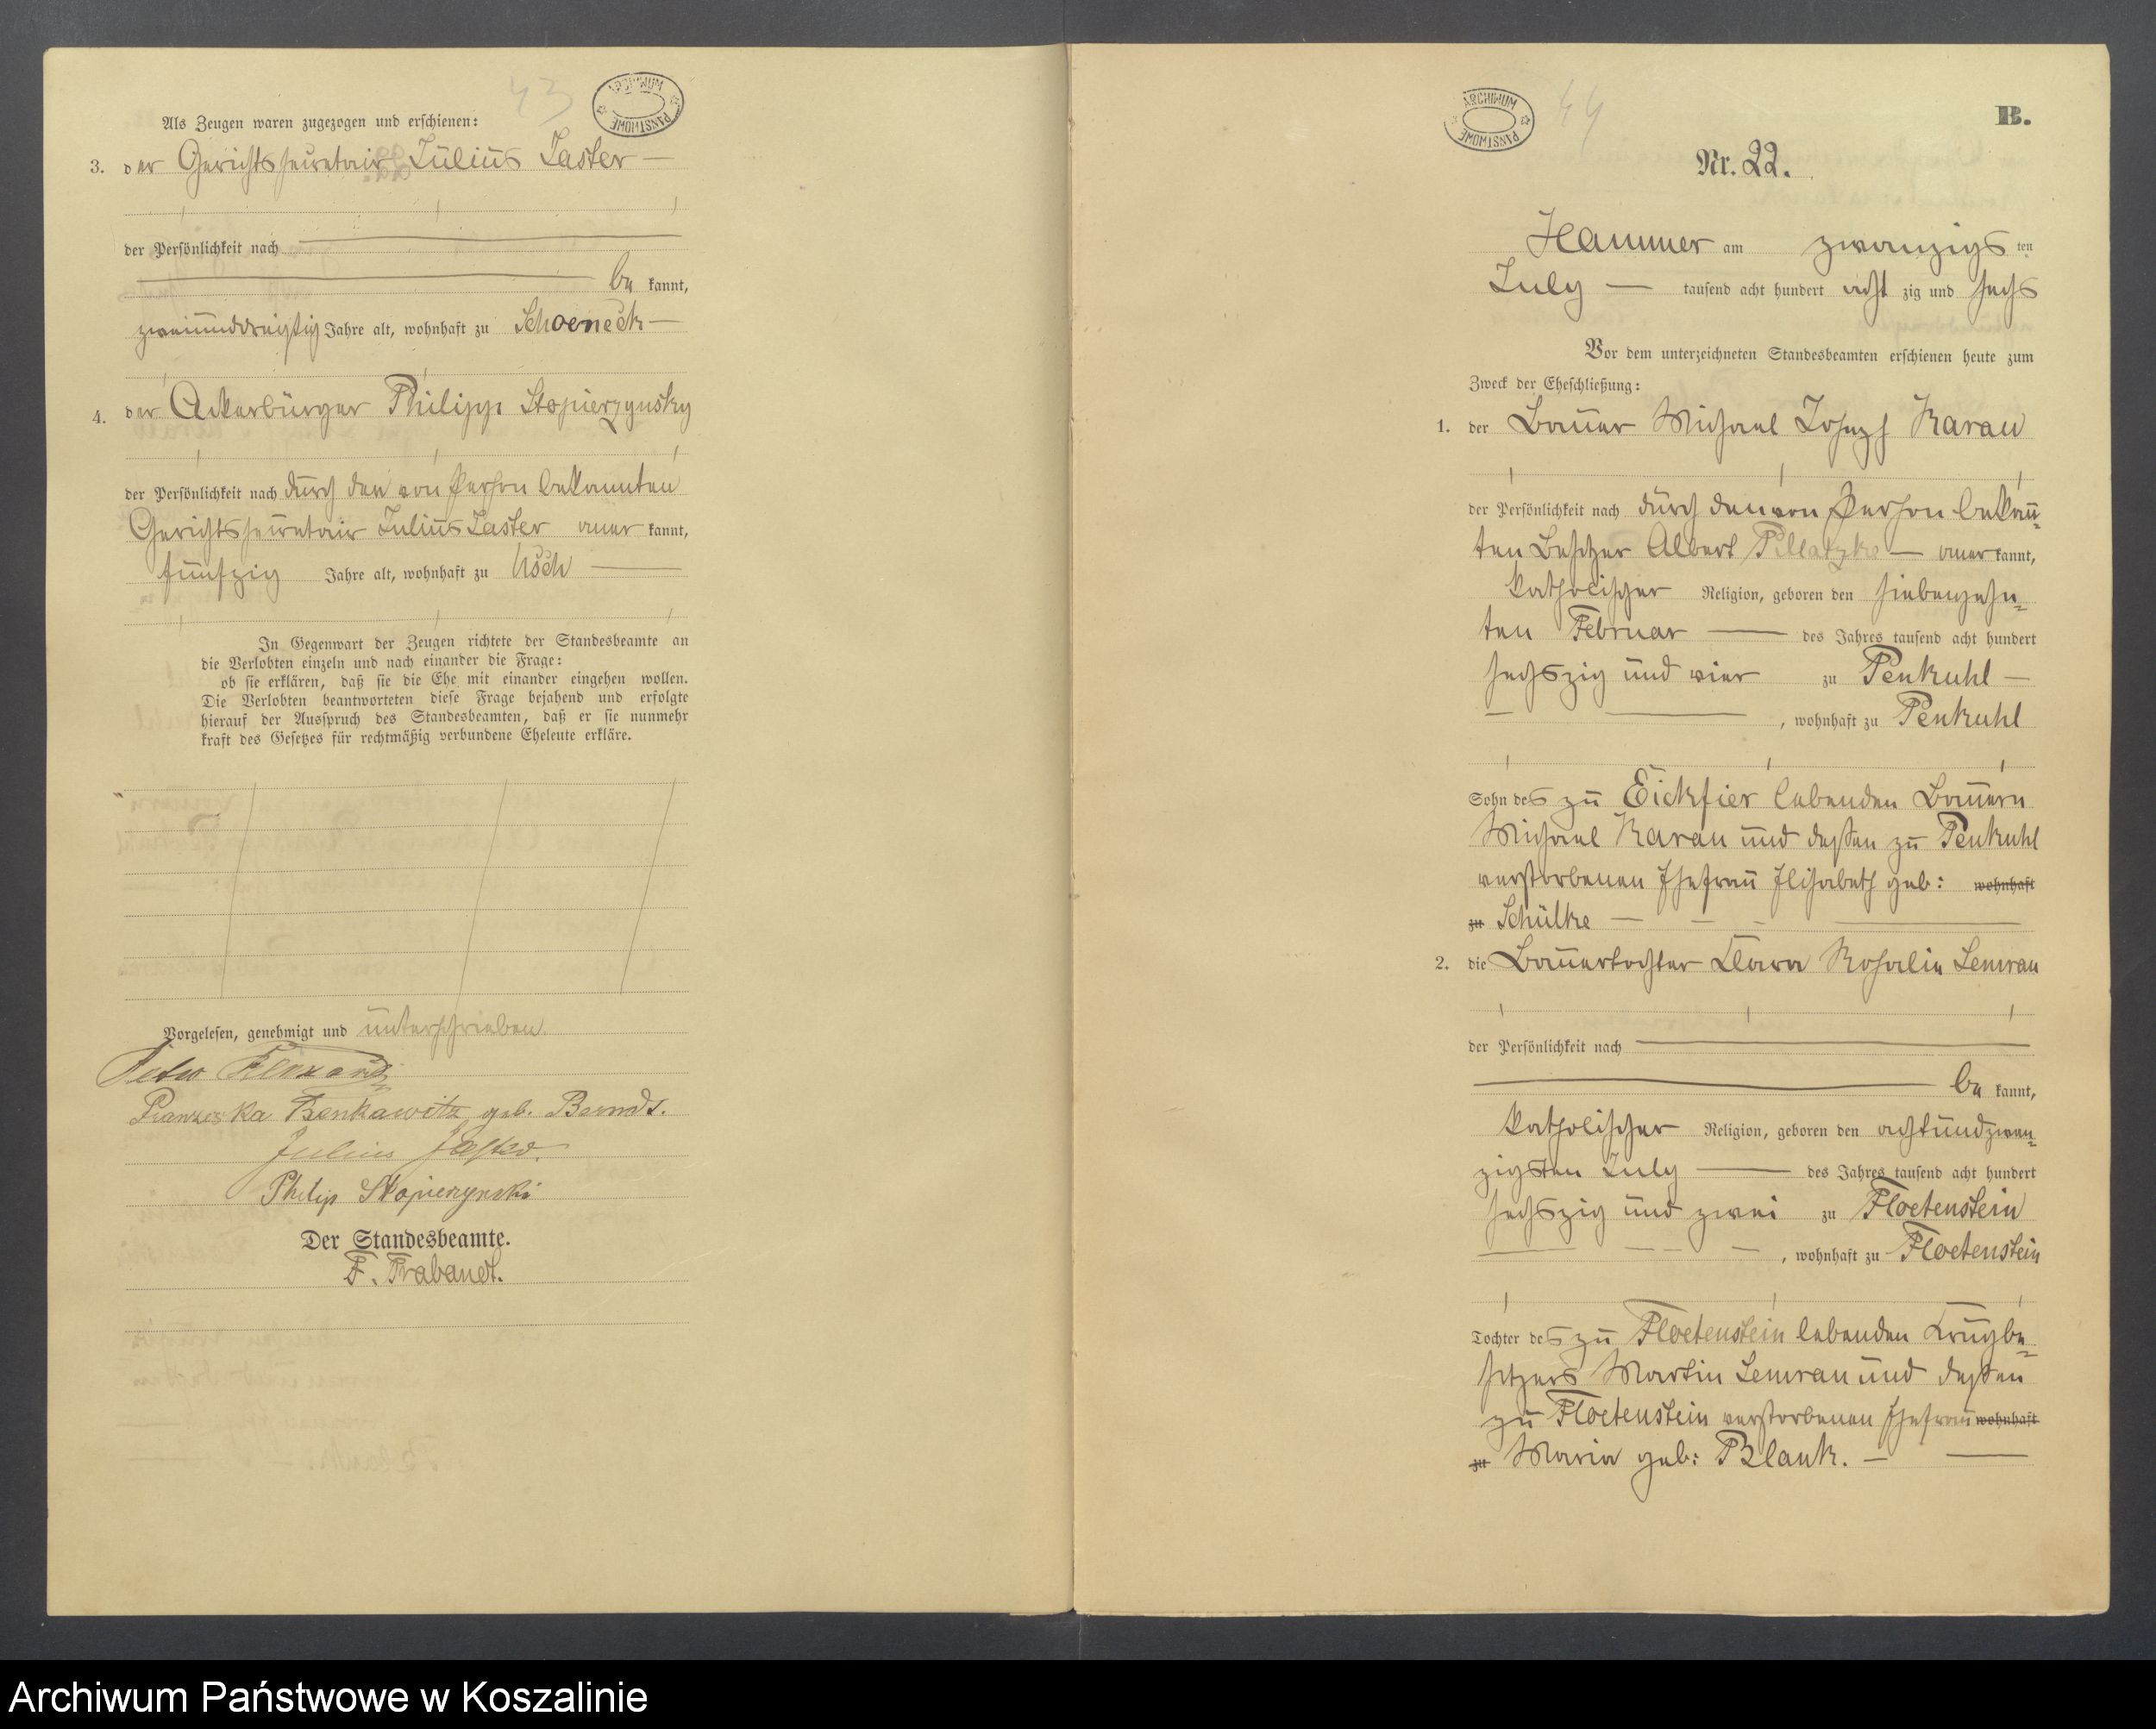 43
ARCHIWUM PAŃSTWOWE
Als Zeugen waren zugezogen und erschienen:
3. der Gerichtssecretair Julius Jaster —
der Persönlichkeit nach
be kannt,
zweiunddreißig Jahre alt, wohnhaft zu Schoeneck —
4. der Ackerbürger Philipp Stopierzynsky
der Persönlichkeit nach durch den von Person bekannten
Gerichtssecretair Julius Jaster aner kannt,
fünfzig Jahre alt, wohnhaft zu Usch —
In Gegenwart der Zeugen richtete der Standesbeamte an
die Verlobten einzeln und nach einander die Frage:
ob sie erklären, daß sie die Ehe mit einander eingehen wollen.
Die Verlobten beantworteten diese Frage bejahend und erfolgte
hierauf der Ausspruch des Standesbeamten, daß er sie nunmehr
kraft des Gesetzes für rechtmäßig verbundene Eheleute erkläre.
Vorgelesen, genehmigt und unterschrieben.
geb.
Julius Jaster.
Philip Stopierzynski
Der Standesbeamte.
F. Trabandt.
ARCHIWUM PAŃSTWOWE
44
B.
Nr. 22.
Hammer am zwanzigs ten
July — tausend acht hundert acht zig und sechs
Vor dem unterzeichneten Standesbeamten erschienen heute zum
Zweck der Eheschließung:
1. der Bauer Michael Joseph Karau
der Persönlichkeit nach durch den von Person bekann=
ten Besitzer Albert Pillatzke — aner kannt,
katholischer Religion, geboren den siebenzehn=
ten Februar — des Jahres tausend acht hundert
sechszig und vier zu Penkuhl —
, wohnhaft zu Penkuhl
Sohn des zu Eickfier lebenden Bauern
Michael Karau und dessen zu Penkuhl
verstorbenen Ehefrau Elisabeth geb: wohnhaft
zu Schülke —
2. die Bauertochter Clara Rosalie Semrau
der Persönlichkeit nach
be kannt,
katholischer Religion, geboren den achtundzwan=
zigsten July — des Jahres tausend acht hundert
sechszig und zwei zu Floetenstein
, wohnhaft zu Floetenstein
Tochter des zu Floetenstein lebenden Krugbe=
sitzers Martin Semrau und dessen
zu Floetenstein verstorbenen Ehefrau wohnhaft
zu Maria geb: Blank. —
Archiwum Państwowe w Koszalinie